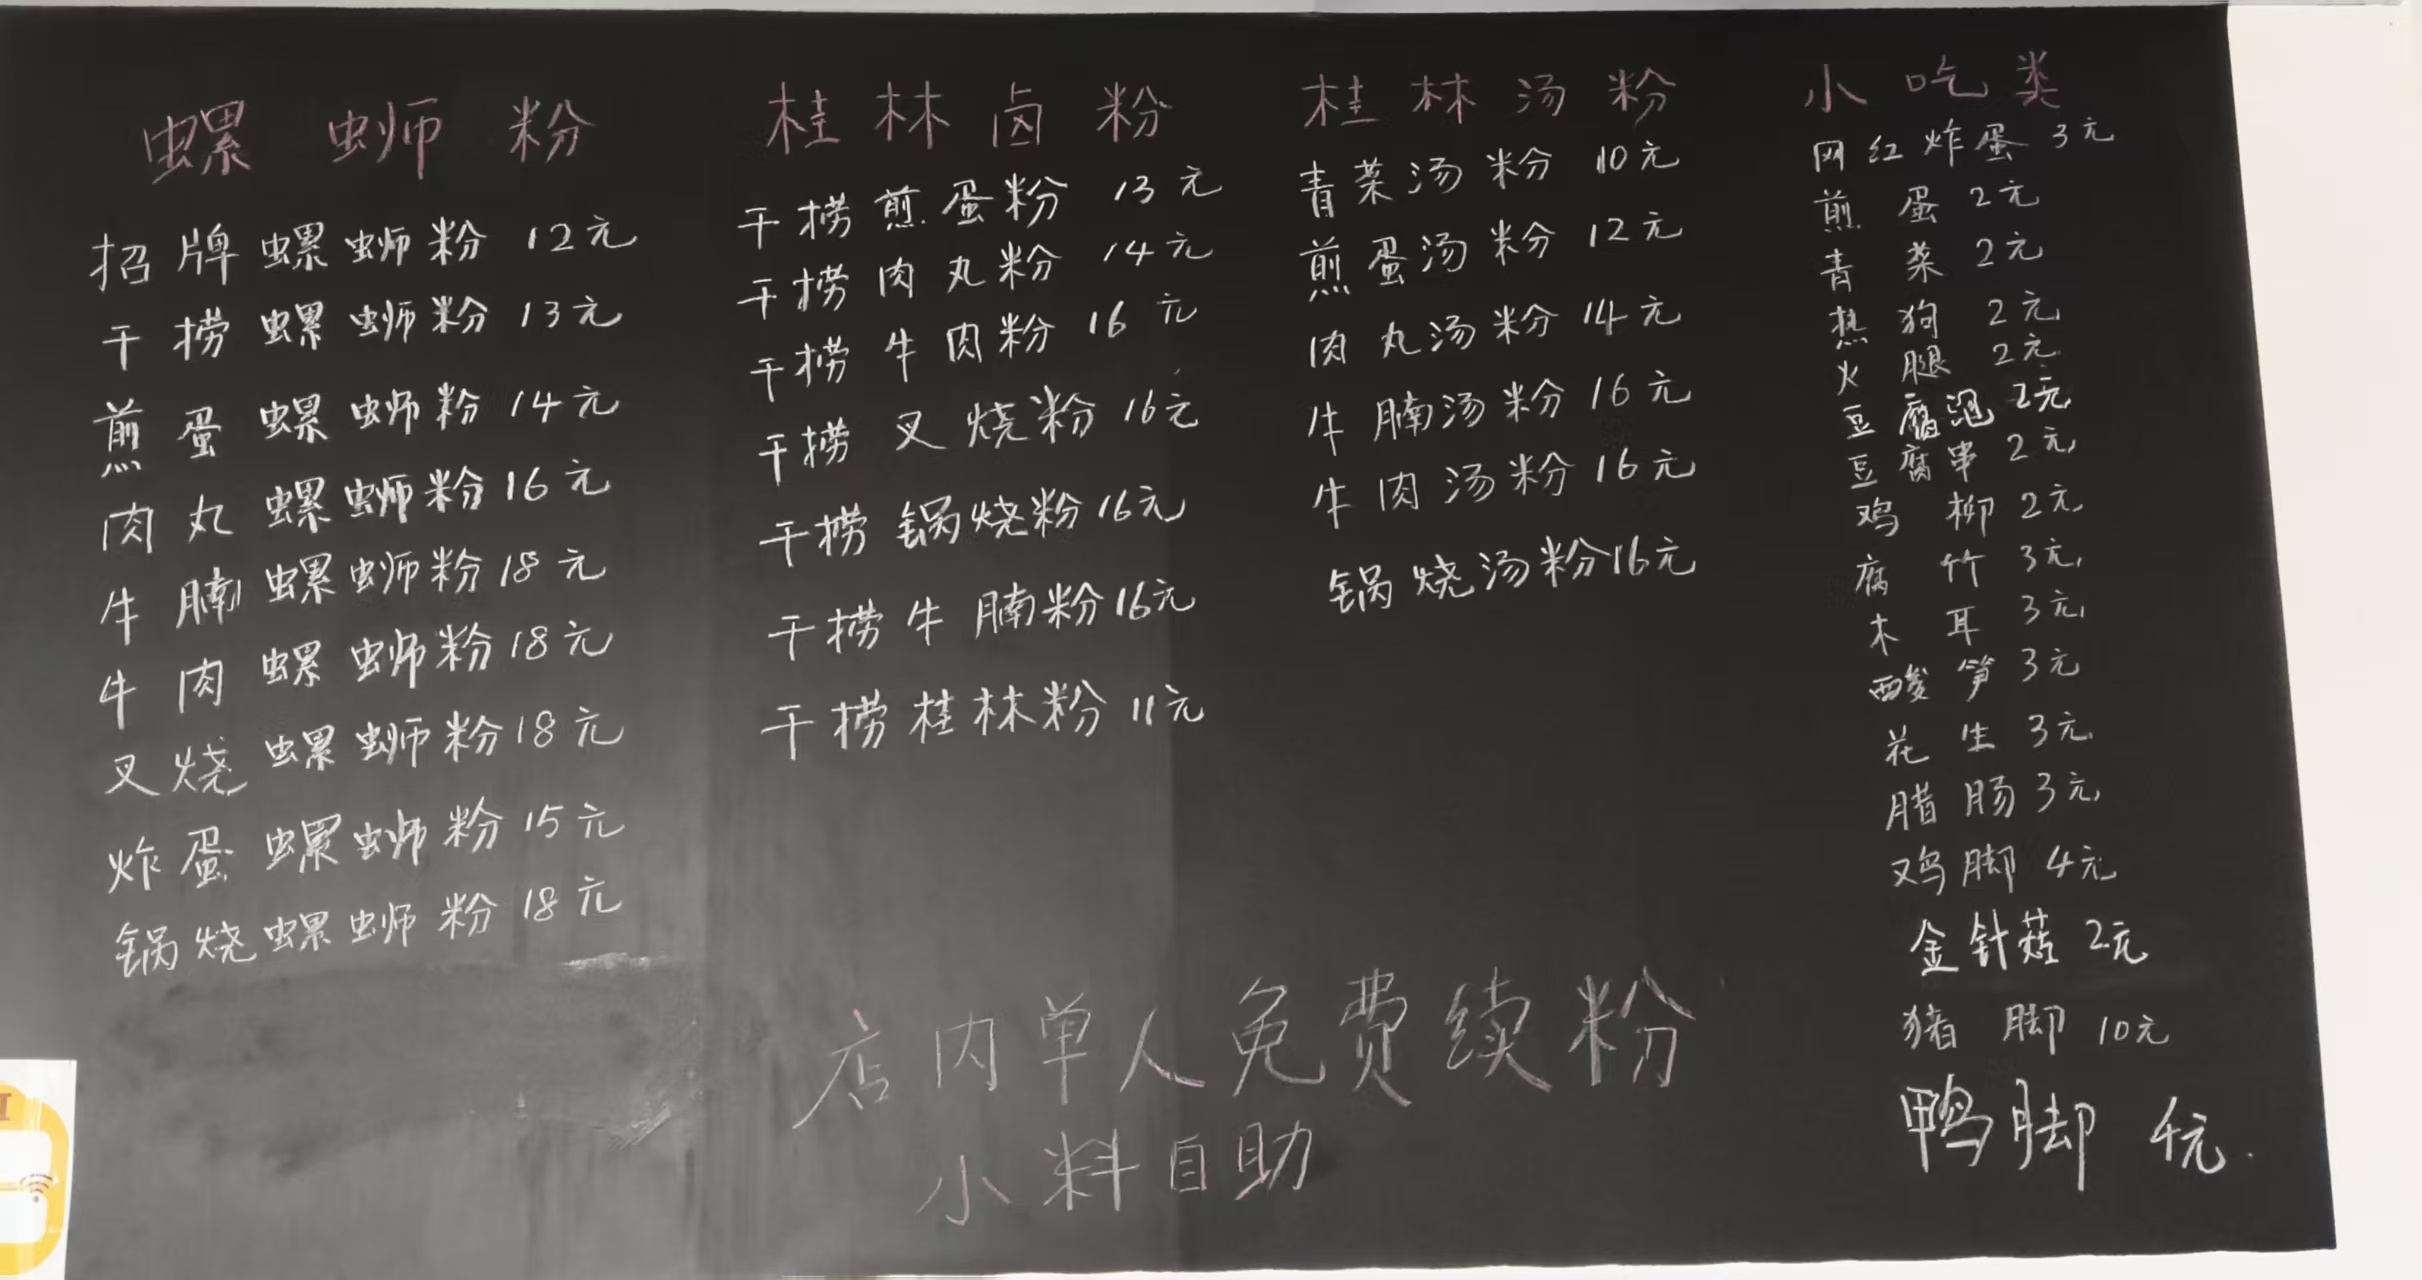 螺蛳粉
招牌螺蛳粉 12元
干捞螺蛳粉 13元
煎蛋螺蛳粉 14元
肉丸螺蛳粉 16元
牛腩螺蛳粉 18元
牛肉螺蛳粉 18元
叉烧螺蛳粉 18元
炸蛋螺蛳粉 15元
锅烧螺蛳粉 18元
桂林卤粉
干捞煎蛋粉 13元
干捞肉丸粉 14元
干捞牛肉粉 16元
干捞叉烧粉 16元
干捞锅烧粉 16元
干捞牛腩粉 16元
干捞桂林粉 11元
桂林汤粉
青菜汤粉 10元
煎蛋汤粉 12元
肉丸汤粉 14元
牛腩汤粉 16元
牛肉汤粉 16元
锅烧汤粉 16元
小吃类
网红炸蛋 3元
煎蛋 2元
青菜 2元
热狗 2元
火腿 2元
豆腐泡 2元
豆腐串 2元
鸡柳 2元
腐竹 3元
木耳 3元
酸笋 3元
花生 3元
腊肠 3元
鸡脚 4元
金针菇 2元
猪脚 10元
鸭脚 4元
店内单人免费续粉
小料自助